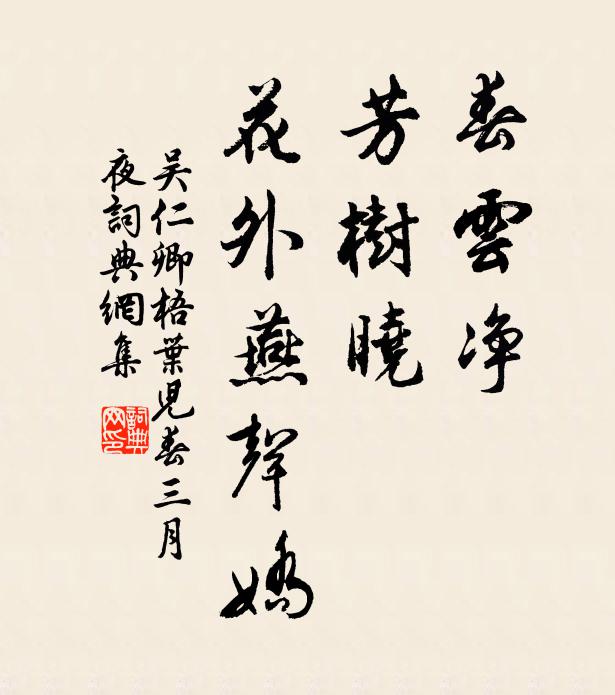 春雲净
芳樹曉
花外燕聲嬌
吴仁卿梧葉児春三月
夜詞典網集
詞典
网印